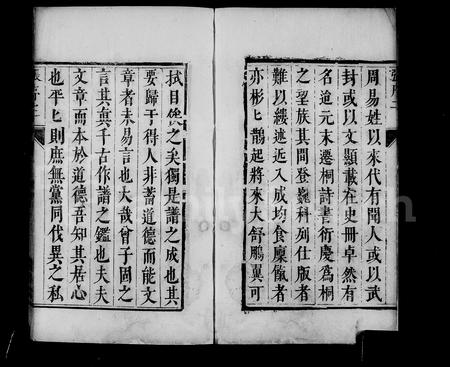 周易姓以來代有聞人或以武
封或以文顯載在史冊卓然有
名迨元末遷桐詩書衍慶爲桐
之望族其間登巍科列仕版者
難以縷述近入成均食廩餼者
亦彬匕鵲起將來大舒鵬翼可
拭目俟之矣獨是譜之成也其
要歸于得人非蓄道德而能文
章者未易言也大哉曾子固之
言其眞千古作譜之鑑也夫夫
文章而本於道德吾知其居心
也平匕則庶無黨同伐異之私